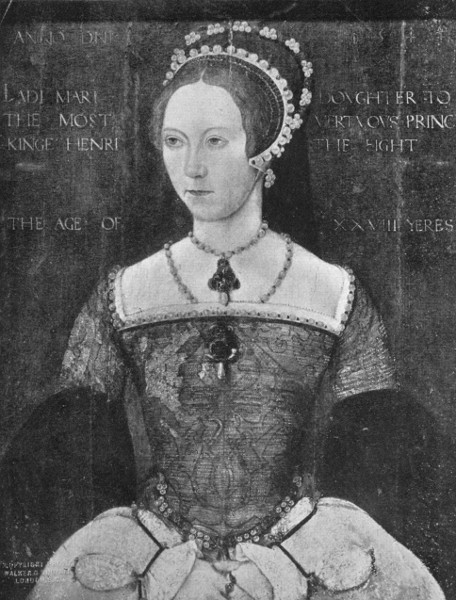 ANNO DNI
LADI MARI DOVGHTER TO
THE MOST VERTVOVS PRINC
KINGE HENRI THE EIGHT
THE AGE OF XXVIII YERES
COPYRIGHT
WALKER &
LONDON